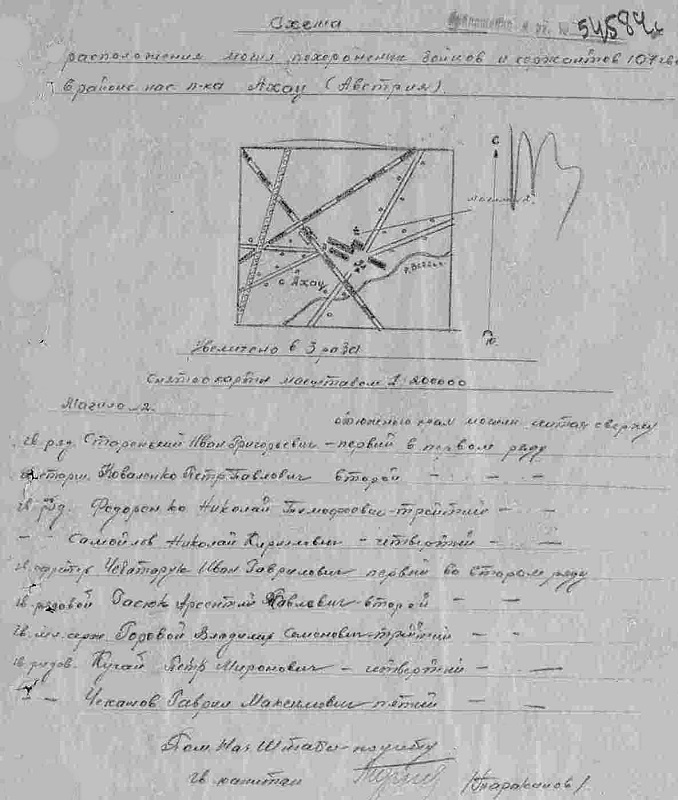 Схема
54584с
расположения могил похороненых бойцов и сержантов 107 гв
в районе нас п-ка Ахау (Австрия).
С
могила №2.
Ахау
Ю.
Увеличено в 3 раза
Снято с карты масштабом 1:200000
Могила №2.
от южного края могилы считая сверху
гв. ряд. Старенький Иван Григорьевич – первый в первом ряду
гв. старш. Коваленко Петр Павлович второй – " – " –
гв. ряд. Федоренко Николай Тимофеевич – третий – " –
– " – Самойлов Николай Кирилович – четвертый – " –
гв. ефрейтор Чеботарук Иван Гаврилович первый во втором ряду
гв. рядовой Гасюк Арсентий Павлович – второй – " –
гв. мл. серж. Горовой Владимир Семенович – третий – " –
гв. рядов. Кучай Петр Миронович – четвертый – " –
– " – Чеканов Гаврил Максимович пятый – " –
Пом. Нач. Штаба по учету
гв капитан /Тараканов/